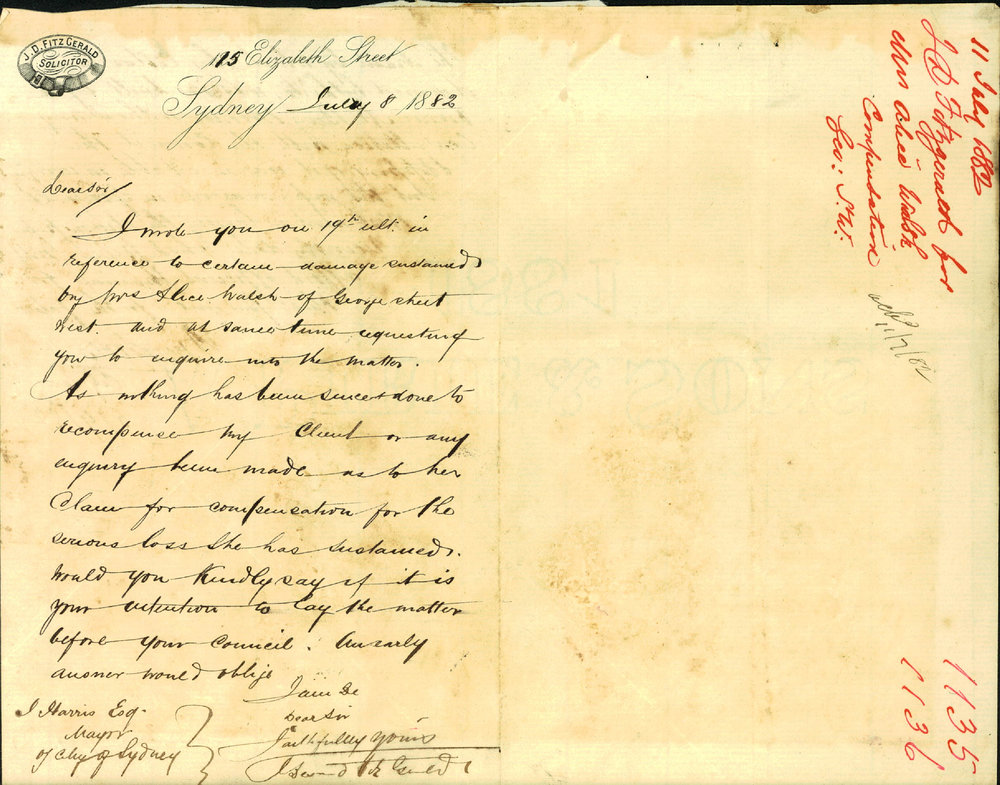 J. D. FITZ GERALD
SOLICITOR
115 Elizabeth Street
Sydney July 8 1882
Dear Sir/
I wrote you on 19th ult. in
reference to certain damage sustained
by Mrs Alice Walsh of George street
West and at same time requesting
you to enquire into the matter.
As nothing has been since done to
recompense my Client or any
enquiry been made as to her
Claim for compensation for the
serious loss she has sustained.
Would you Kindly say if it is
your intention to lay the matter
before your Council. An early
answer would oblige
I am
Dear Sir
Faithfully Yours
J Harris Esq.
Mayor
of City of Sydney
11 July 1882
J D Fitzgerald for
Mrs Alice Walsh
Compensation
Geo: St. W.
1135
1136